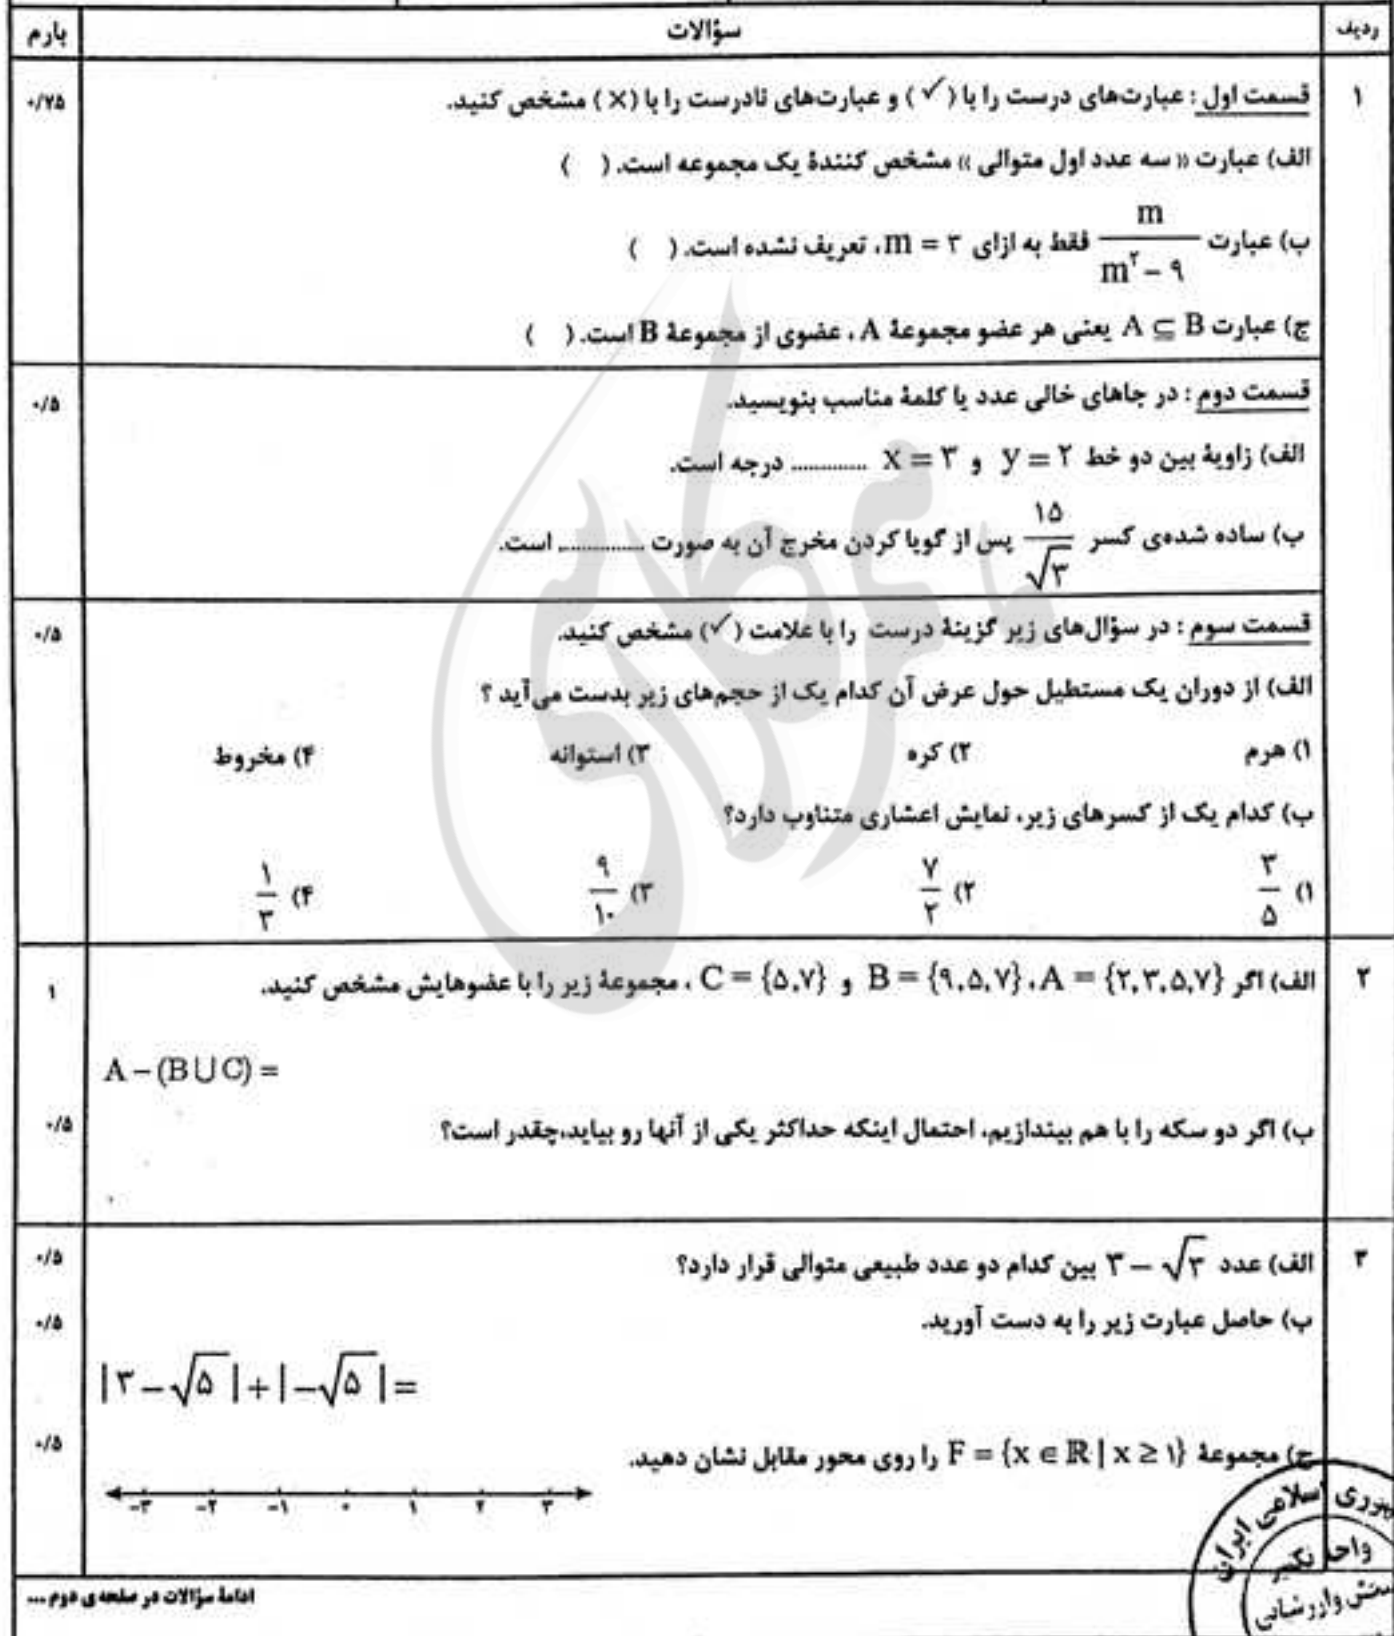 ردیف سؤالات بارم
۱ قسمت اول : عبارت‌های درست را با ( ✓ ) و عبارت‌های نادرست را با ( × ) مشخص کنید. ۰/۷۵
الف) عبارت « سه عدد اول متوالی » مشخص کنندهٔ یک مجموعه است. (    )
ب) عبارت m/(m² − ۹) فقط به ازای m = ۳، تعریف نشده است. (    )
ج) عبارت A ⊆ B یعنی هر عضو مجموعهٔ A ، عضوی از مجموعهٔ B است. (    )
قسمت دوم : در جاهای خالی عدد یا کلمهٔ مناسب بنویسید. ۰/۵
الف) زاویهٔ بین دو خط y = ۲ و x = ۳ ............. درجه است.
ب) ساده شده‌ی کسر ۱۵/√۳ پس از گویا کردن مخرج آن به صورت .............. است.
قسمت سوم : در سؤال‌های زیر گزینهٔ درست را با علامت (✓) مشخص کنید. ۰/۵
الف) از دوران یک مستطیل حول عرض آن کدام یک از حجم‌های زیر بدست می‌آید ؟
۱) هرم ۲) کره ۳) استوانه ۴) مخروط
ب) کدام یک از کسرهای زیر، نمایش اعشاری متناوب دارد؟
۱) ۳/۵ ۲) ۷/۲ ۳) ۹/۱۰ ۴) ۱/۳
۲ الف) اگر A = {۲,۳,۵,۷} ، B = {۹,۵,۷} و C = {۵,۷} ، مجموعهٔ زیر را با عضوهایش مشخص کنید. ۱
A − (B ∪ C) =
ب) اگر دو سکه را با هم بیندازیم، احتمال اینکه حداکثر یکی از آنها رو بیاید،چقدر است؟ ۰/۵
۳ الف) عدد ۳ − √۳ بین کدام دو عدد طبیعی متوالی قرار دارد؟ ۰/۵
ب) حاصل عبارت زیر را به دست آورید. ۰/۵
|۳ − √۵| + |−√۵| =
ج) مجموعهٔ F = {x ∈ ℝ | x ≥ ۱} را روی محور مقابل نشان دهید. ۰/۵
−۳ −۲ −۱ ۰ ۱ ۲ ۳
ادامهٔ سؤالات در صفحه‌ی دوم ...
اسلامی ایران
واحد تکثیر